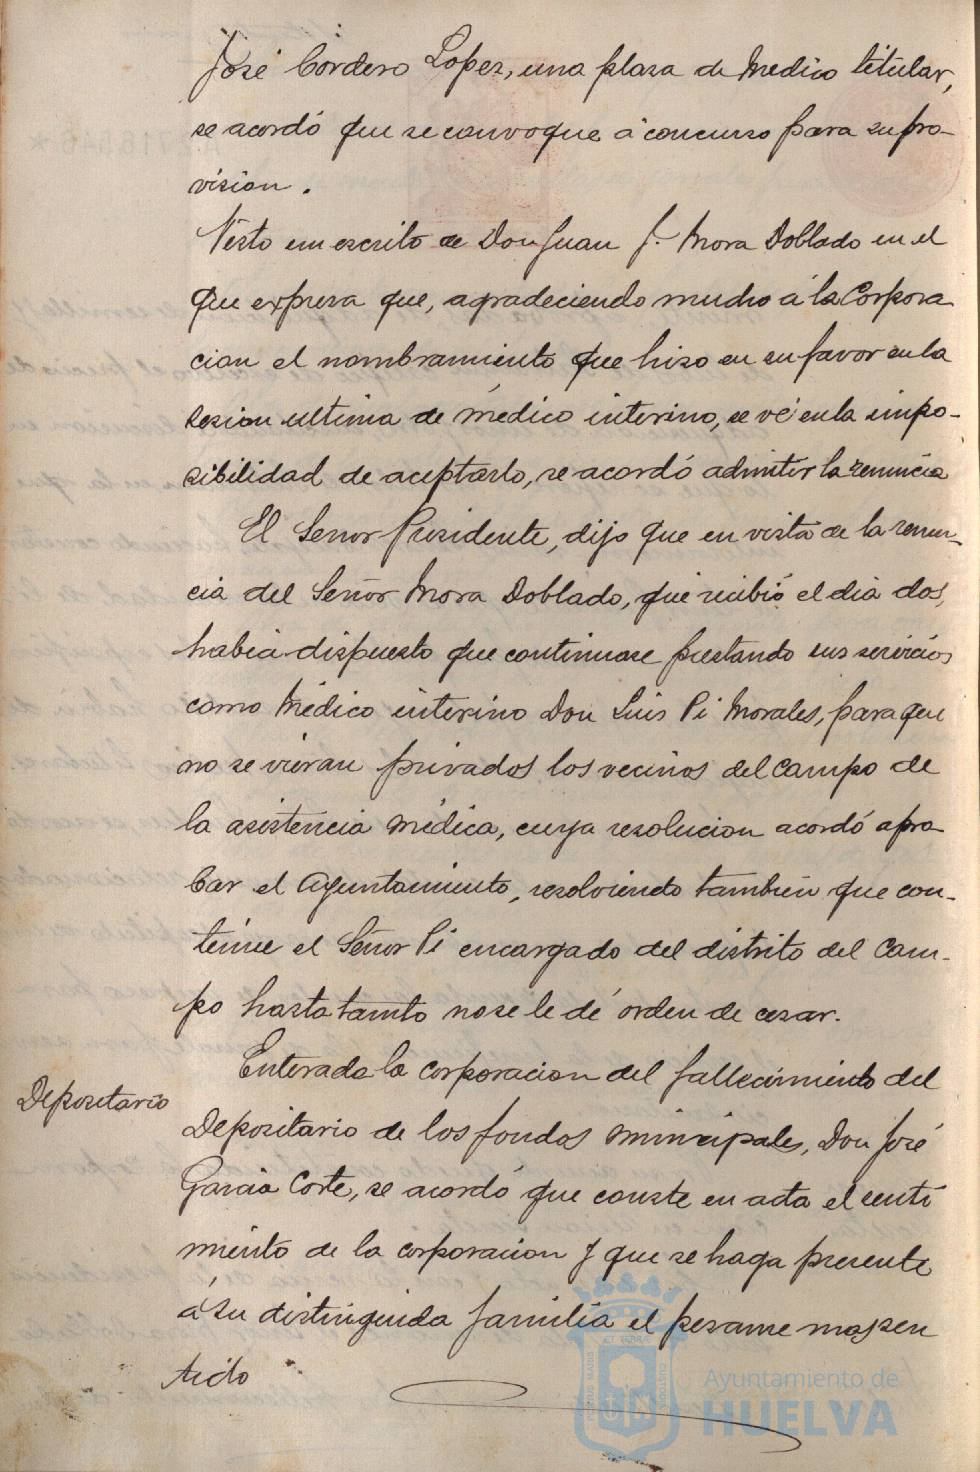 José Cordero Lopez, una plaza de Medico titular,
se acordó que se convoque á concurso para su pro-
vision.
Visto un escrito de Don Juan J. Mora Doblado en el
que expresa que, agradeciendo mucho á la Corpora
cion el nombramiento que hizo en su favor en la
sesion ultima de médico interino, se vé en la impo-
sibilidad de aceptarlo, se acordó admitir la renuncia
El Señor Presidente, dijo que en vista de la renun-
cia del Señor Mora Doblado, que recibió el dia dos,
habia dispuesto que continuase prestando sus servicios
como Médico interino Don Luis Pi Morales, para que
no se vieran privados los vecinos del campo de
la asistencia médica, cuya resolucion acordó apro-
bar el Ayuntamiento, resolviendo tambien que con-
tinue el Señor Pi encargado del distrito del Cam-
po hasta tanto no se le dé orden de cesar.
Depositario
Enterada la corporacion del fallecimiento del
Depositario de los fondos municipales, Don José
Garcia Corte, se acordó que conste en acta el senti
miento de la corporacion y que se haga presente
á su distinguida familia el pesame mas sen
tido
Ayuntamiento de
HUELVA